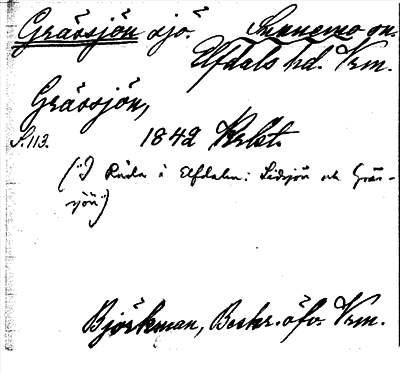 Gråssjön sjö. Sunnemo sn.
Elfdals hd. Vrm.
Gråssjön,
S. 113. 1842 Krkt.
("I Råda i Elfdalen: Lidsjön och Grås-
sjön")
Björkman, Beskr. öfv. Vrm.